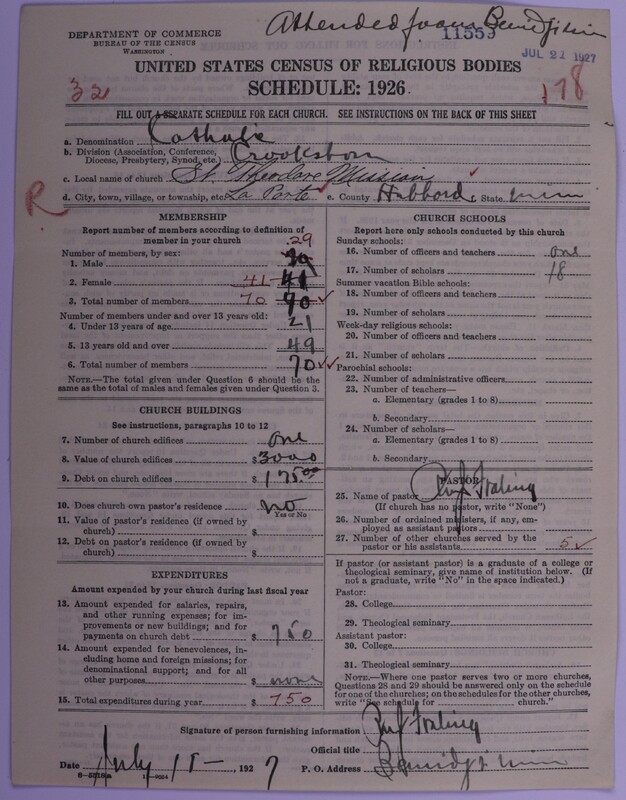 Attended from Bemidji Minn
DEPARTMENT OF COMMERCE
BUREAU OF THE CENSUS
WASHINGTON
11559
JUL 22 1927
UNITED STATES CENSUS OF RELIGIOUS BODIES
SCHEDULE: 1926
32
178
FILL OUT A SEPARATE SCHEDULE FOR EACH CHURCH. SEE INSTRUCTIONS ON THE BACK OF THIS SHEET
a. Denomination Catholic
b. Division (Association, Conference, Diocese, Presbytery, Synod, etc.) Crookston
c. Local name of church St. Theodore Mission
R
d. City, town, village, or township, etc. La Porte e. County Hubbard f. State Minn
MEMBERSHIP
Report number of members according to definition of member in your church
Number of members, by sex: 29
1. Male
2. Female 41 41
3. Total number of members 70 70
Number of members under and over 13 years old:
4. Under 13 years of age 21
5. 13 years old and over 49
6. Total number of members 70
NOTE.—The total given under Question 6 should be the same as the total of males and females given under Question 3.
CHURCH BUILDINGS
See instructions, paragraphs 10 to 12
7. Number of church edifices one
8. Value of church edifices $3000
9. Debt on church edifices $175.00
10. Does church own pastor's residence? No
Yes or No
11. Value of pastor's residence (if owned by church) $
12. Debt on pastor's residence (if owned by church) $
EXPENDITURES
Amount expended by your church during last fiscal year
13. Amount expended for salaries, repairs, and other running expenses; for improvements or new buildings; and for payments on church debt $ 750
14. Amount expended for benevolences, including home and foreign missions; for denominational support; and for all other purposes $ none
15. Total expenditures during year $ 750
CHURCH SCHOOLS
Report here only schools conducted by this church
Sunday schools:
16. Number of officers and teachers one
17. Number of scholars 18
Summer vacation Bible schools:
18. Number of officers and teachers
19. Number of scholars
Week-day religious schools:
20. Number of officers and teachers
21. Number of scholars
Parochial schools:
22. Number of administrative officers
23. Number of teachers—
a. Elementary (grades 1 to 8)
b. Secondary
24. Number of scholars—
a. Elementary (grades 1 to 8)
b. Secondary
PASTOR
25. Name of pastor
(If church has no pastor, write "None")
26. Number of ordained ministers, if any, employed as assistant pastors
27. Number of other churches served by the pastor or his assistants 5
If pastor (or assistant pastor) is a graduate of a college or theological seminary, give name of institution below. (If not a graduate, write "No" in the space indicated.)
Pastor:
28. College
29. Theological seminary
Assistant pastor:
30. College
31. Theological seminary
NOTE.—Where one pastor serves two or more churches, Questions 28 and 29 should be answered only on the schedule for one of the churches; on the schedules for the other churches, write "See schedule for church."
Signature of person furnishing information
Official title
Date July 15 - 1927 P. O. Address Bemidji Minn